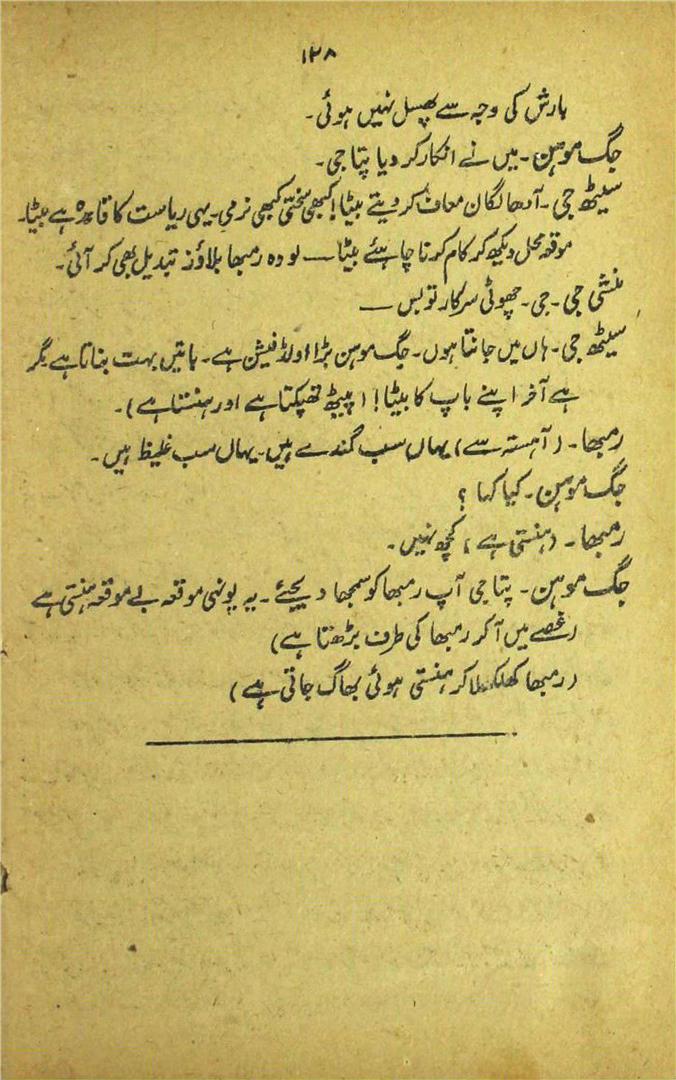 ۱۲۸
بارش کی وجہ سے پھسل نہیں ہوئی۔
جگ موہن۔ میں نے انکار کر دیا پتا جی۔
سیٹھ جی۔ آدھا لگان معاف کر دیتے بیٹا! کبھی سختی کبھی نرمی۔ یہی ریاست کا قاعدہ ہے بیٹا۔
موقعہ محل دیکھ کر کام کرنا چاہئے بیٹا — لو وہ رمبھا بلاؤز تبدیل بھی کر آئی۔
منشی جی۔ جی۔ چھوٹی سرکار تو بس —
سیٹھ جی۔ ہاں میں جانتا ہوں۔ جگ موہن بڑا اولڈ فیشن ہے۔ باتیں بہت بناتا ہے مگر
ہے آخر اپنے باپ کا بیٹا! (پیٹھ تھپکتا ہے اور ہنستا ہے)۔
رمبھا۔ (آہستہ سے) یہاں سب گندے ہیں۔ یہاں سب غلیظ ہیں۔
جگ موہن۔ کیا کہا ؟
رمبھا۔ (ہنستی ہے) کچھ نہیں۔
جگ موہن۔ پتا جی آپ رمبھا کو سمجھا دیجئے۔ یہ یونہی موقعہ بے موقعہ ہنستی ہے
(غصے میں آ کر رمبھا کی طرف بڑھتا ہے)
(رمبھا کھلکھلا کر ہنستی ہوئی بھاگ جاتی ہے)